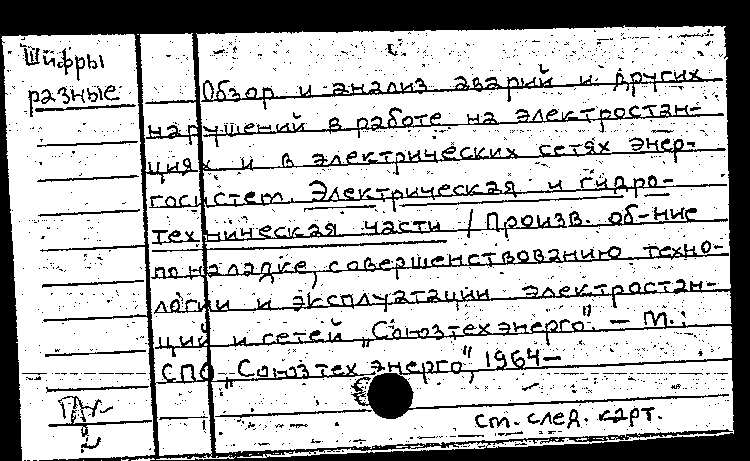 Шифры
разные
Обзор и анализ аварий и других
нарушений в работе на электростан-
циях и в электрических сетях энер-
госистем. Электрическая и гидро-
техническая части / Произв. об-ние
по наладке, совершенствованию техно-
логии и эксплуатации электростан-
ций и сетей „Союзтехэнерго". — М.:
СПО „Союзтехэнерго", 1964—
2
см. след. карт.